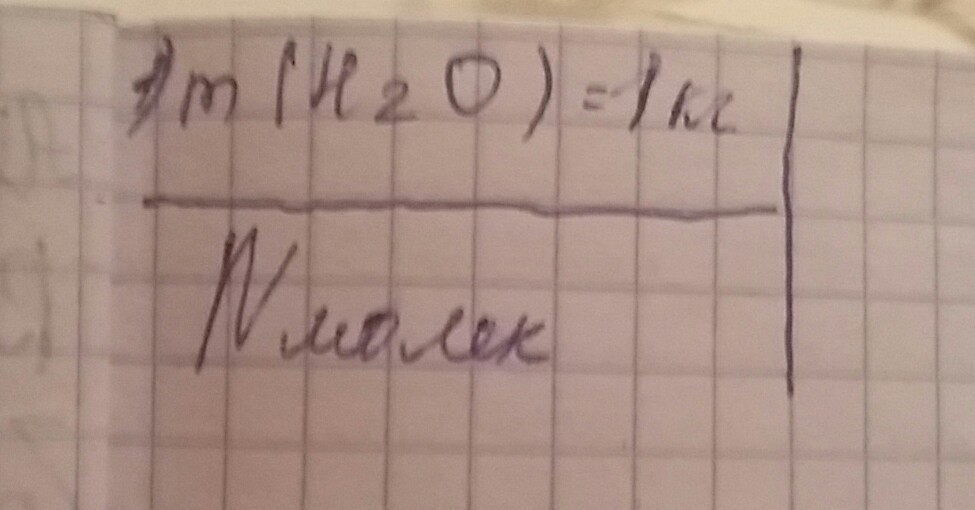 1) m(H2O)=1кг
Nмолек